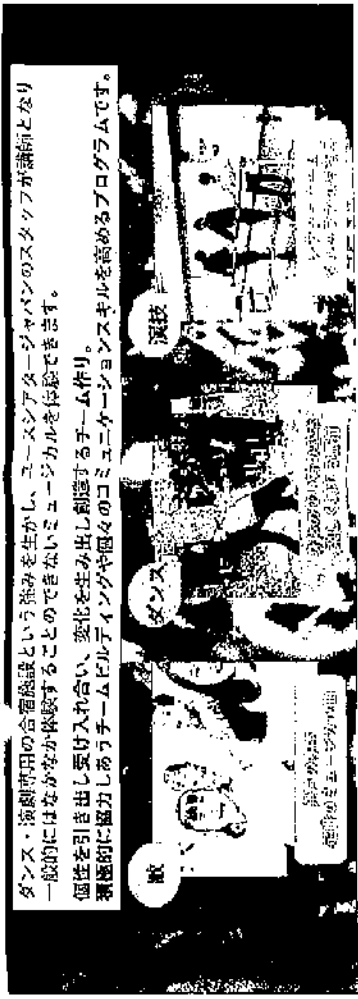 ダンス・演劇専用の合宿施設という強みを生かし、ユースシアタージャパンのスタッフが講師となり
一般的にはなかなか体験することのできないミュージカルを体験できます。
個性を引き出し受け入れ合い、変化を生み出し創造するチーム作り。
積極的に協力しあうチームビルディングや個々のコミュニケーションスキルを高めるプログラムです。
歌
ダンス
演技